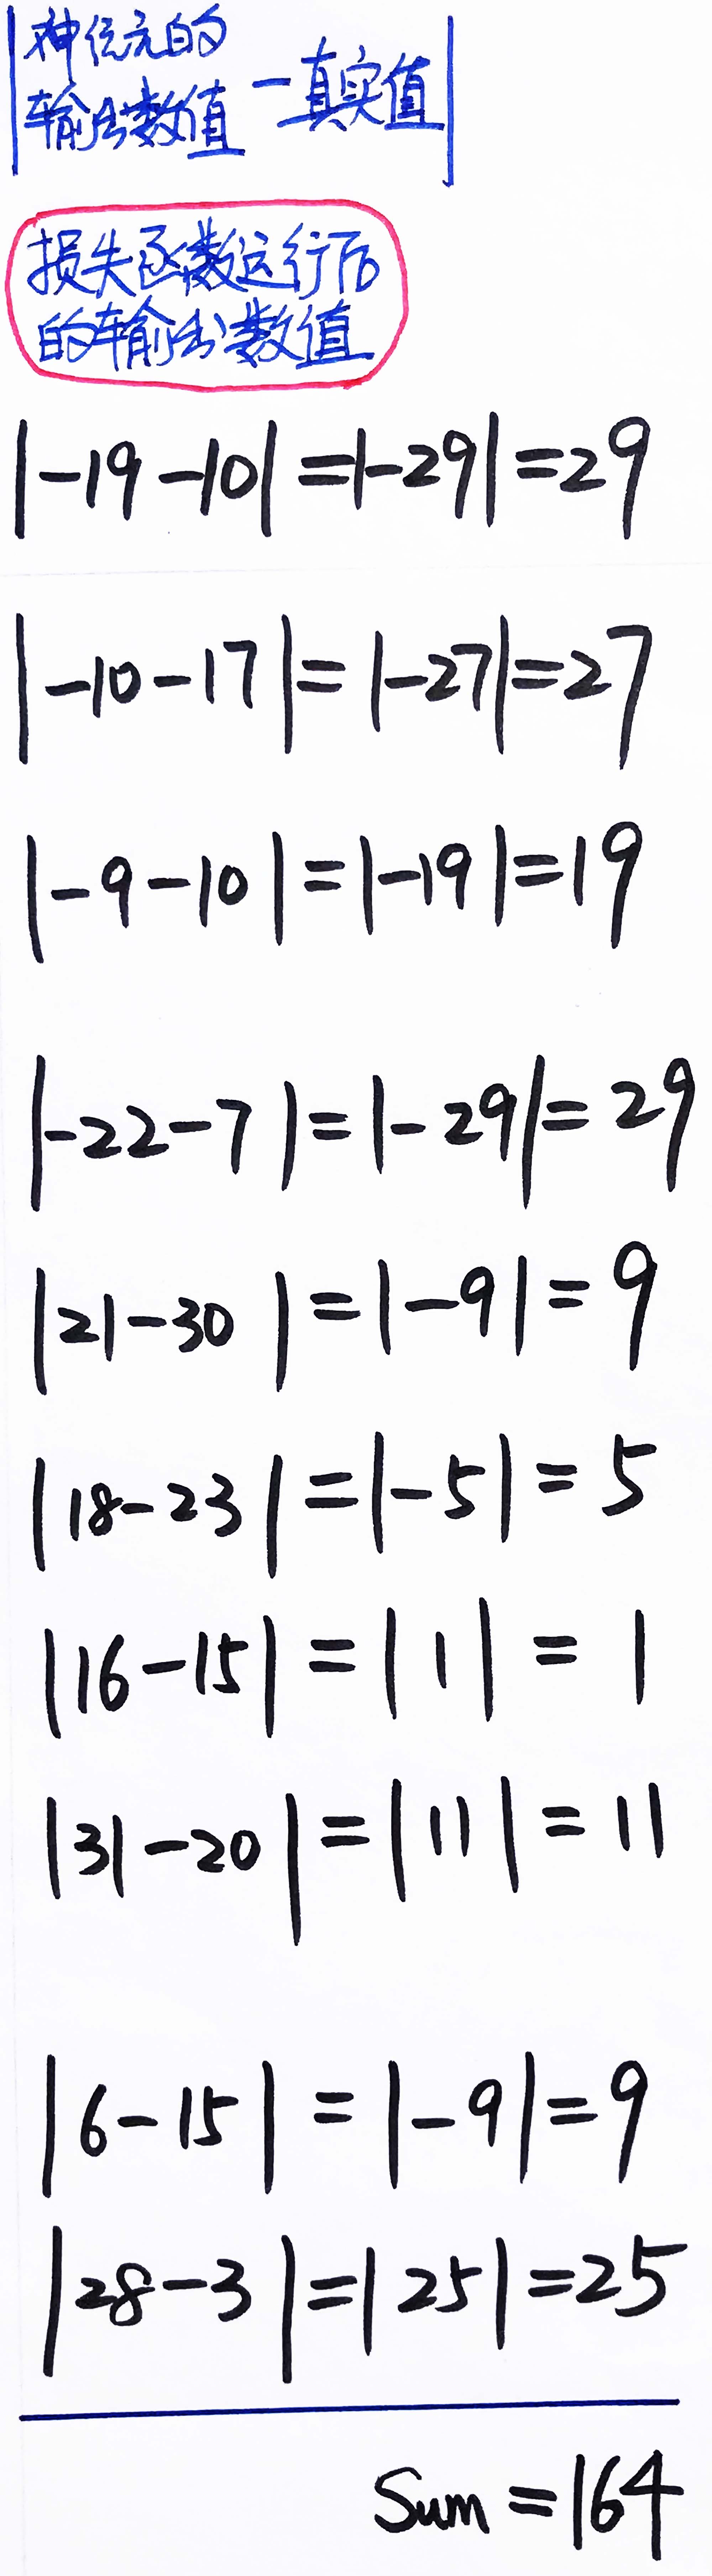 |神经元的
输出数值 - 真实值|
损失函数运行后
的输出数值
|-19-10|=|-29|=29
|-10-17|=|-27|=27
|-9-10|=|-19|=19
|-22-7|=|-29|=29
|21-30|=|-9|=9
|18-23|=|-5|=5
|16-15|=|1|=1
|31-20|=|11|=11
|6-15|=|-9|=9
|28-3|=|25|=25
Sum=164